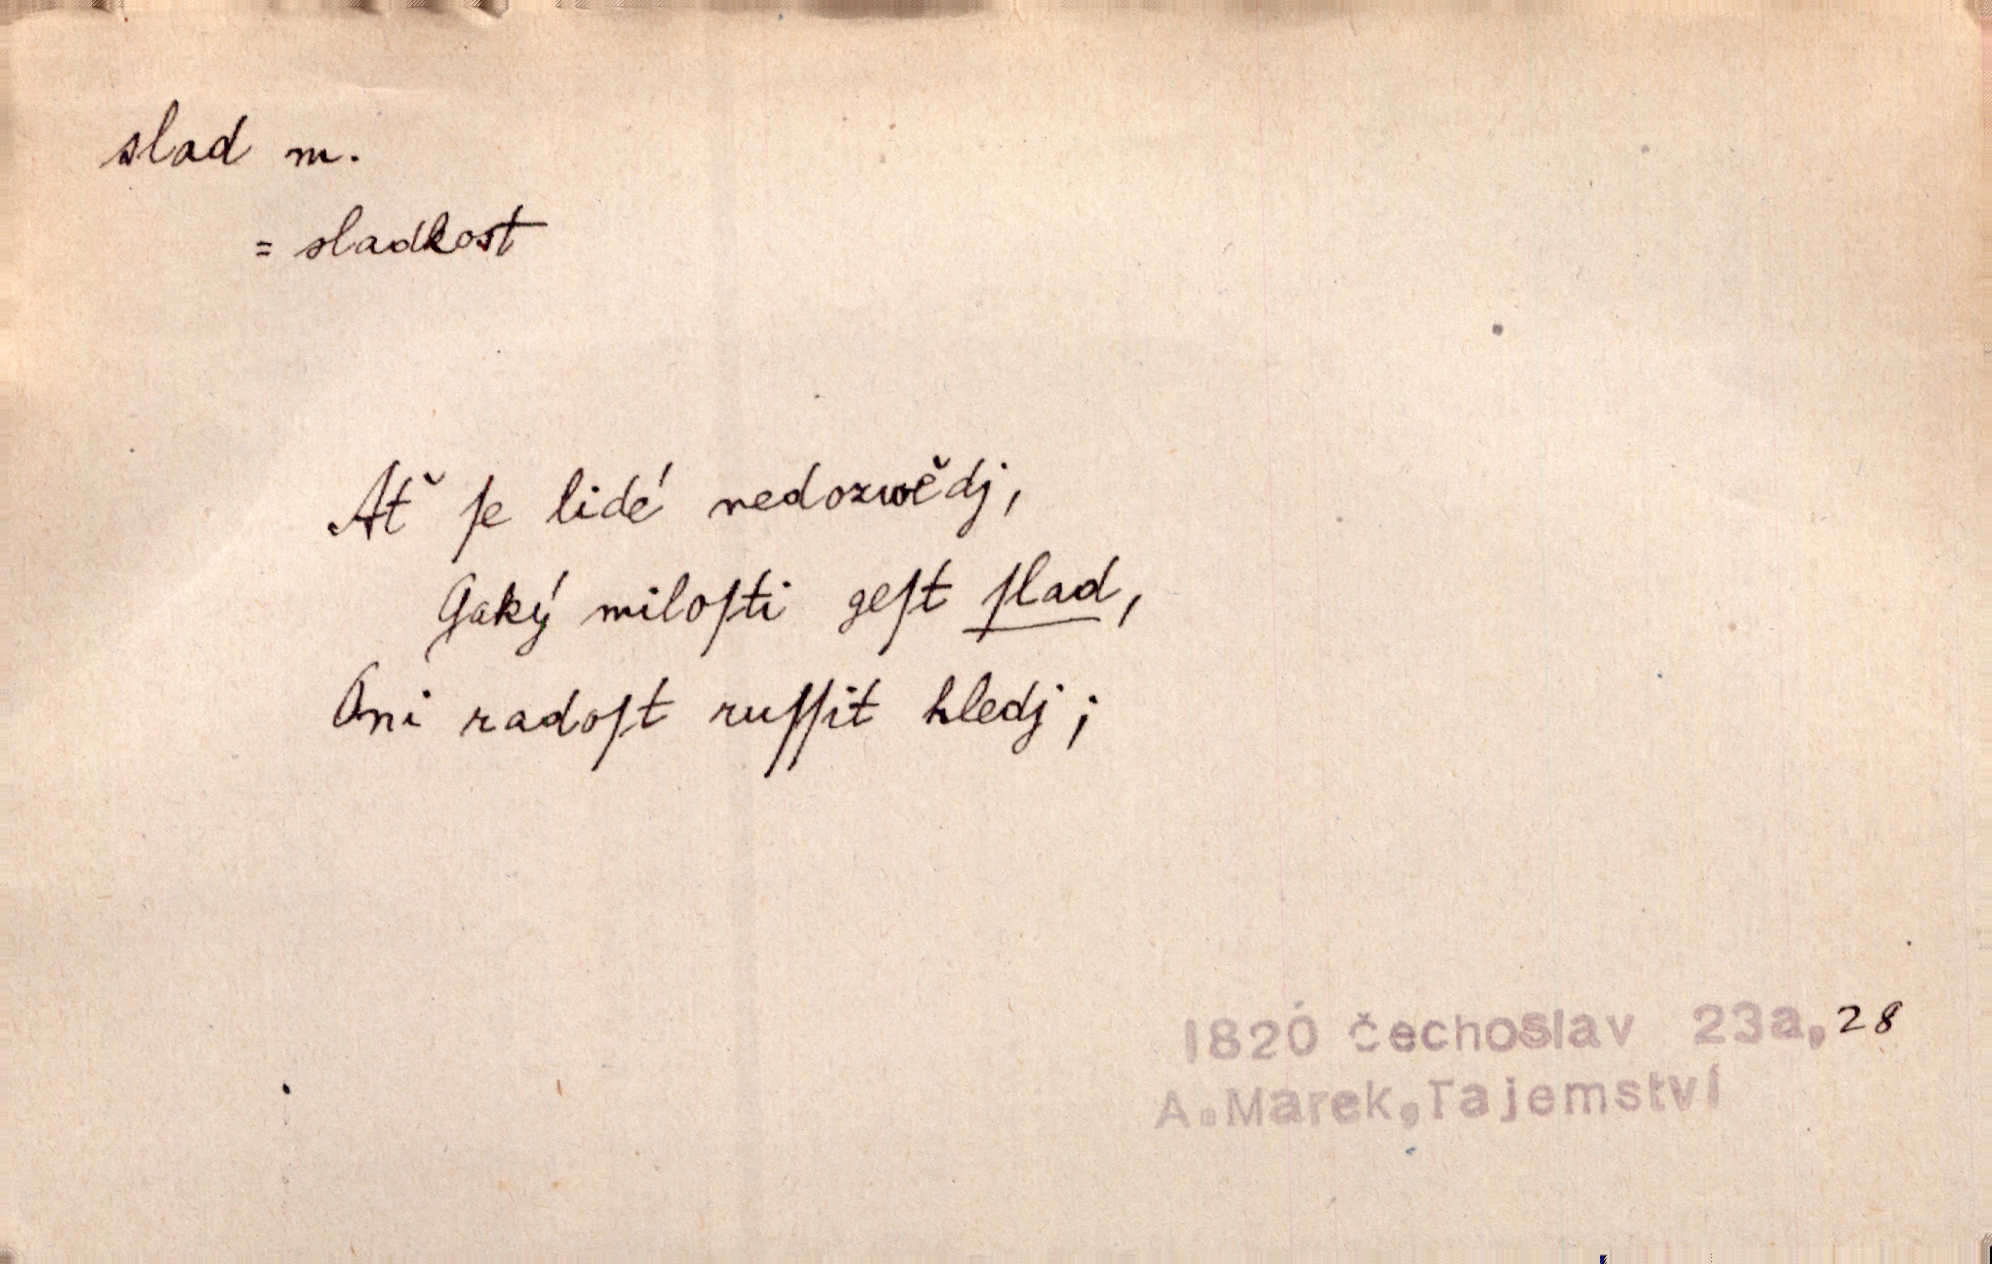 slad m.
= sladkost
Ať ſe lidé nedozwědj,
Gaký miloſti geſt ſlad,
Oni radoſt ruſſit hledj;
1820 čechoslav 23a,28
A.Marek,Tajemství